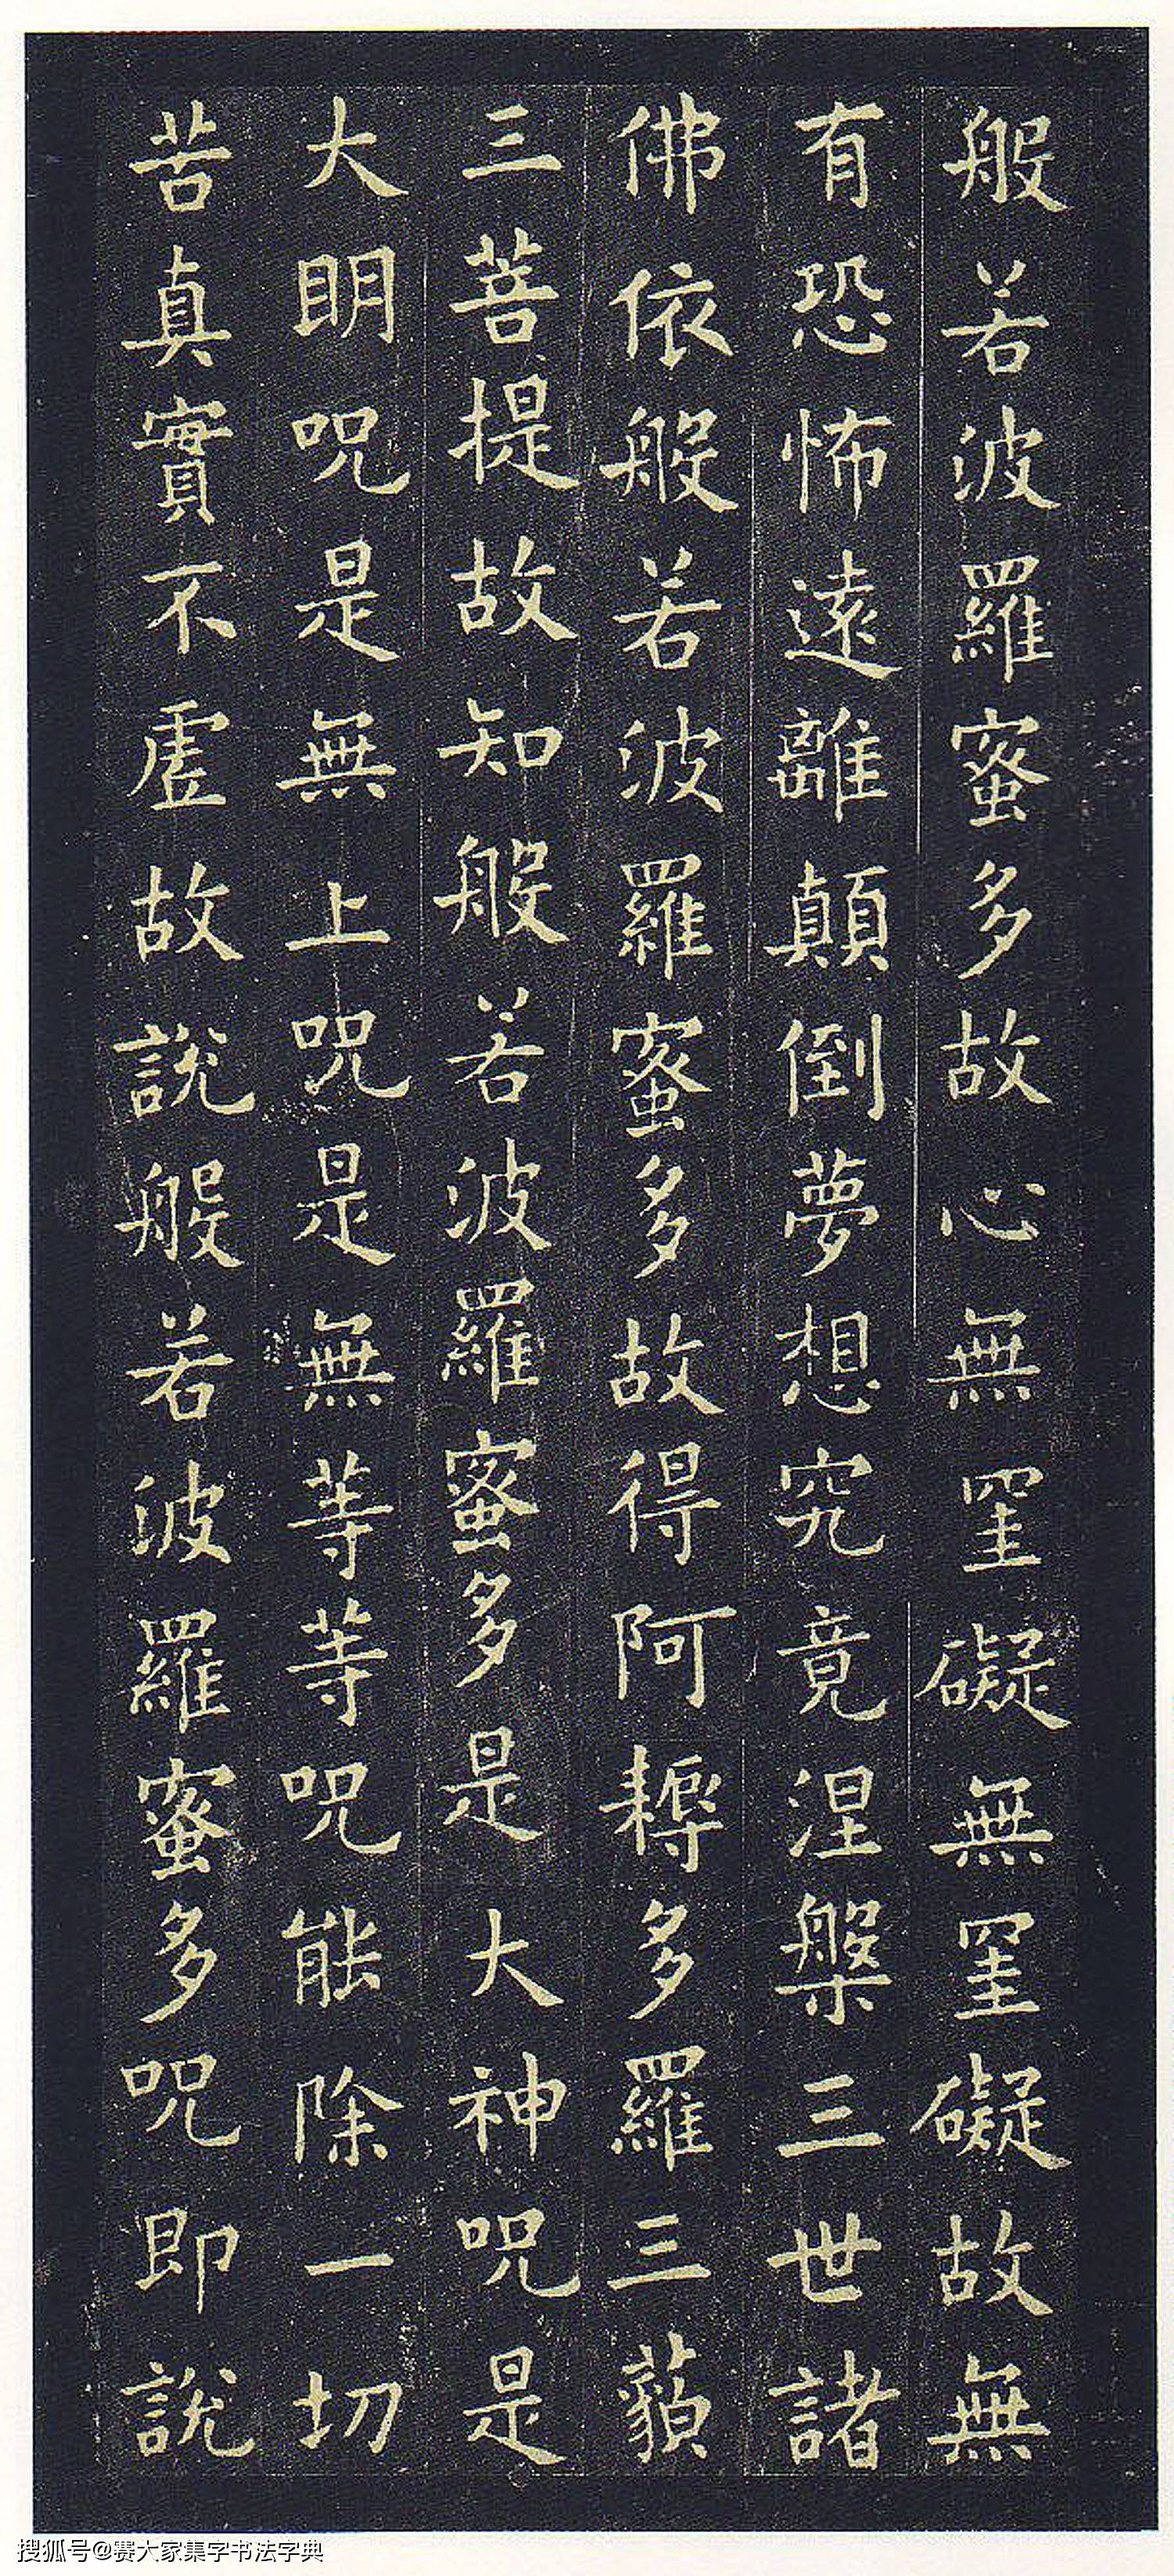 般若波羅蜜多故心無罣礙無罣礙故無
有恐怖遠離顛倒夢想究竟涅槃三世諸
佛依般若波羅蜜多故得阿耨多羅三藐
三菩提故知般若波羅蜜多是大神呪是
大明呪是無上呪是無等等呪能除一切
苦真實不虛故說般若波羅蜜多呪即說
搜狐号@赛大家集字书法字典